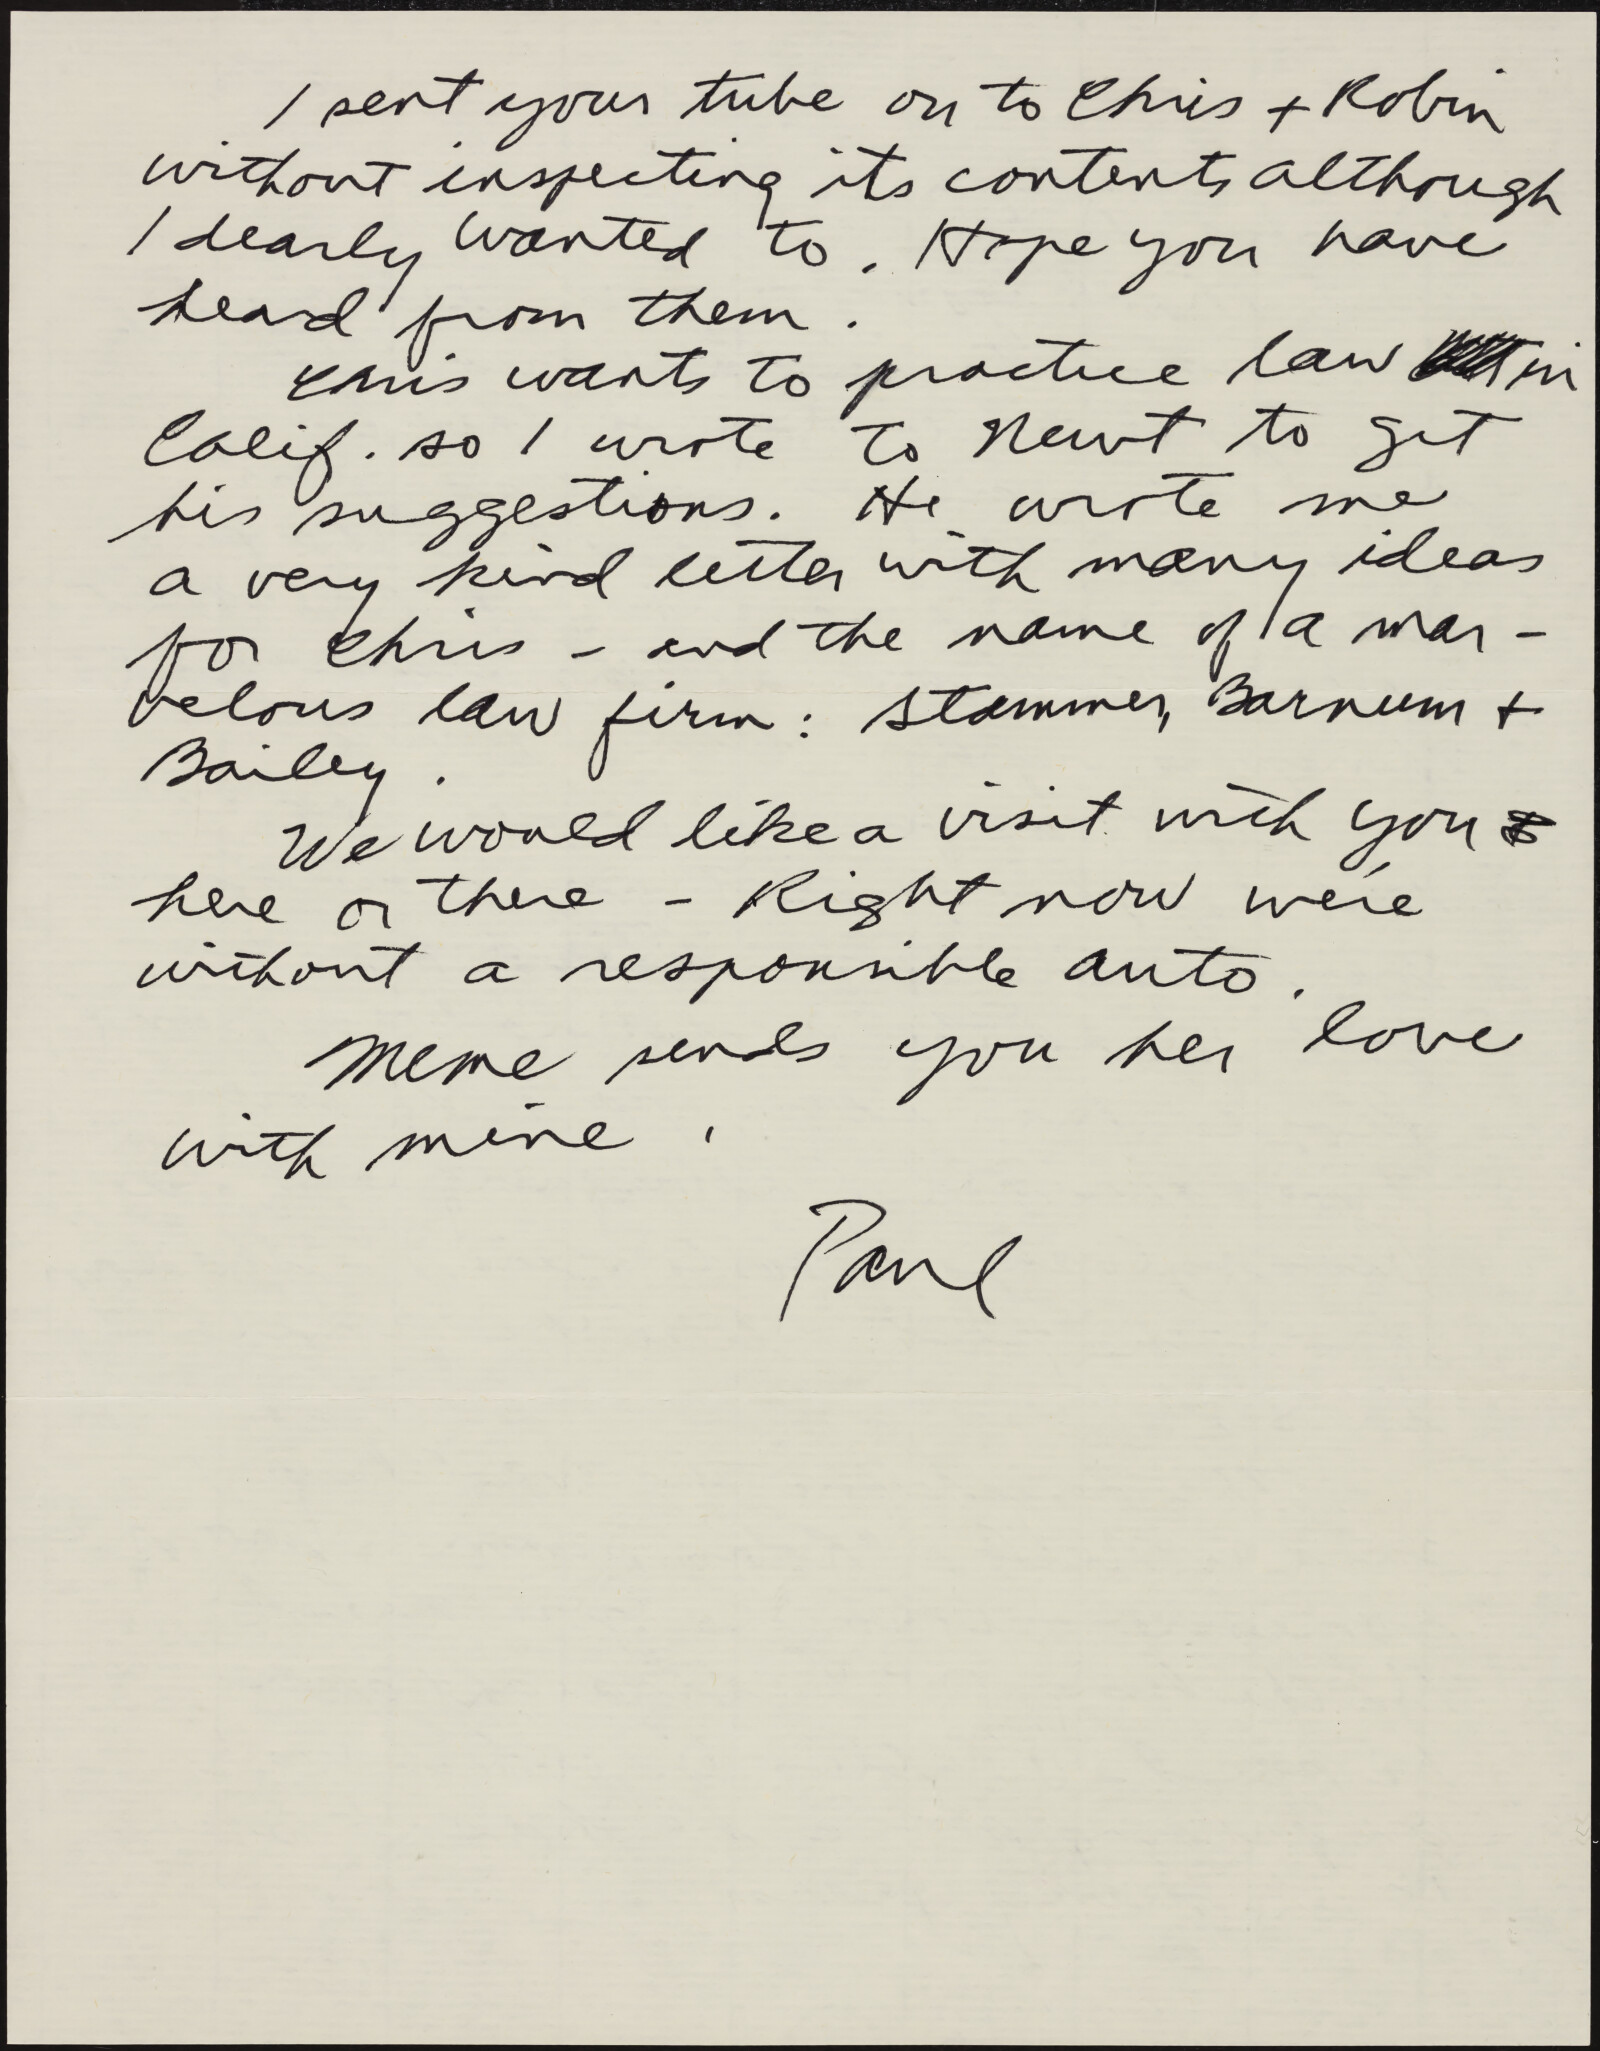 I sent your tube on to Chris + Robin
without inspecting its contents although
I dearly wanted to. Hope you have
heard from them.
Chris wants to practice law in
Calif. so I wrote to Newt to get
his suggestions. He wrote me
a very kind letter with many ideas
for Chris - and the name of a mar-
velous law firm: Stammer, Barnum +
Bailey.
We would like a visit with you
here or there - Right now we're
without a responsible auto.
Meme sends you her love
with mine.
Paul